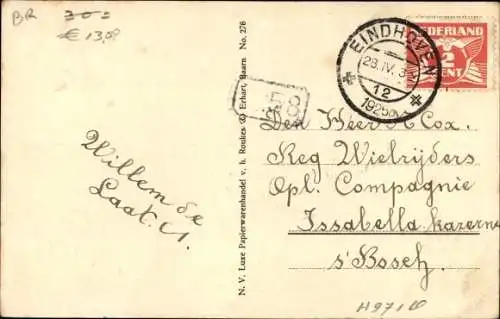 BR 30=
€ 13,00
EINDHOVEN
28.IV.3
12
1925
NEDERLAND
2
CENT
58
Den Heer H Cox.
Reg Wielrijders
Opl: Compagnie
Issabella kazerne
s'Bosch.
Willem de
Laat. A.
N. V. Luxe Papierwarenhandel v. h. Roukes & Erhart, Baarn No. 276
H971